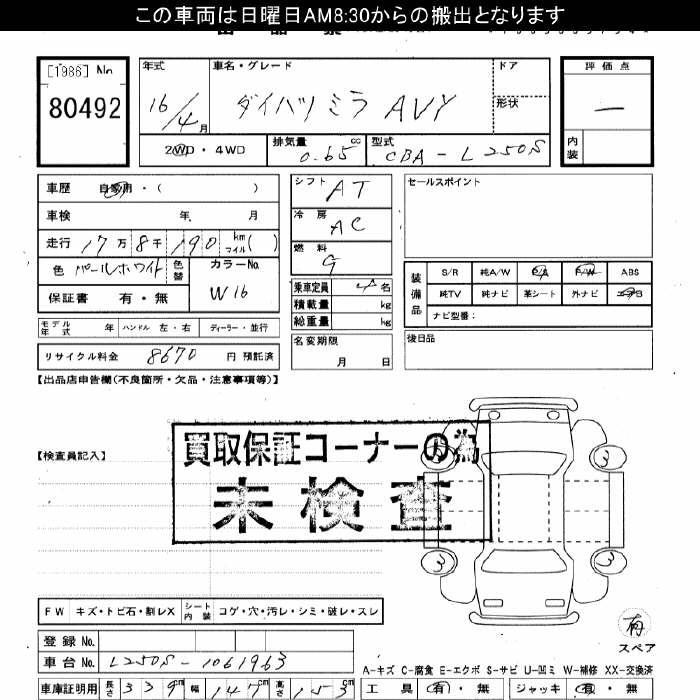 この車両は日曜日AM8:30からの搬出となります
[1986] No 年式 車名・グレード ドア 評価点
80492 16/4月 ダイハツ ミラ AVY 形状 —
2WD・4WD 排気量 0.65 cc 型式 CBA-L250S 内装
車歴 自家用・( ) シフト AT セールスポイント
車検 年 月 冷房 AC
走行 17万8千190 km マイル( ) 燃料 G
色 パールホワイト 色替 カラーNo. W16
装備品 S/R 純A/W P/S P/W ABS
保証書 有・無 乗車定員 4名 純TV 純ナビ 革シート 外ナビ エアB
積載量 kg ナビ型番:
モデル年式 年 ハンドル 左・右 ディーラー・並行 総重量 kg
リサイクル料金 8670 円 預託済 名変期限 月 日 後日品
【出品店申告欄(不良箇所・欠品・注意事項等)】
【検査員記入】
買取保証コーナーの為
未検査
3
3 3
FW キズ・トビ石・割レX シート内装 コゲ・穴・汚レ・シミ・破レ・スレ
有
スペア
登録 No.
車台 No. L250S-1061963
A-キズ C-腐食 E-エクボ S-サビ U-凹ミ W-補修 XX-交換済
車庫証明用 長さ 339cm 幅 147cm 高さ 153cm 工具 有・無 ジャッキ 有・無